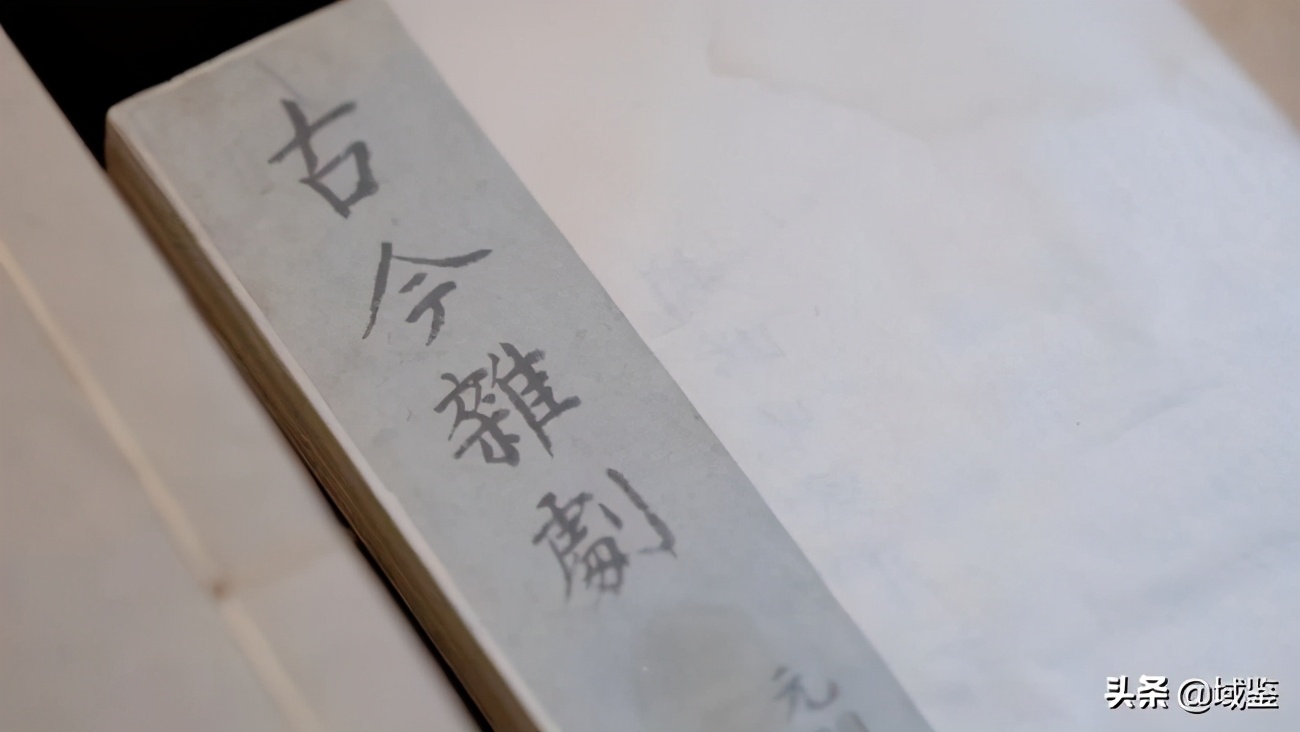 古今雜劇
元
头条 @域鉴